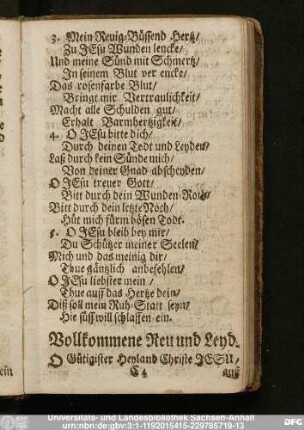 3. Mein Reuig-Büssend Hertz/
Zu JEsu Wunden lencke/
Und meine Sünd mit Schmertz/
In seinem Blut ver encke/
Das rosenfarbe Blut/
Bringt mir Vertraulichkeit/
Macht alle Schulden gut/
Erhält Barmhertzigkeit/
4. O JEsu bitte dich/
Durch deinen Todt und Leyden/
Laß durch kein Sünde mich/
Von deiner Gnad abscheyden/
O JEsu treuer Gott/
Bitt durch dein Wunden Roth/
Bitt durch dein letzte Noth/
Hüt mich fürm bösen Todt.
5. O JEsu bleib bey mir/
Du Schützer meiner Seelen/
Mich und das meinig dir/
Thue gäntzlich anbefehlen/
O JEsu liebster mein/
Thue auff das Hertze dein/
Diß soll mein Ruh-Statt seyn/
Hie süß will schlaffen ein.
Vollkommene Reu und Leyd.
O Gütigister Heyland Christe JESU/
C 4 auß
ein
Universitäts- und Landesbibliothek Sachsen-Anhalt
urn:nbn:de:gbv:3:1-1192015415-229785719-13